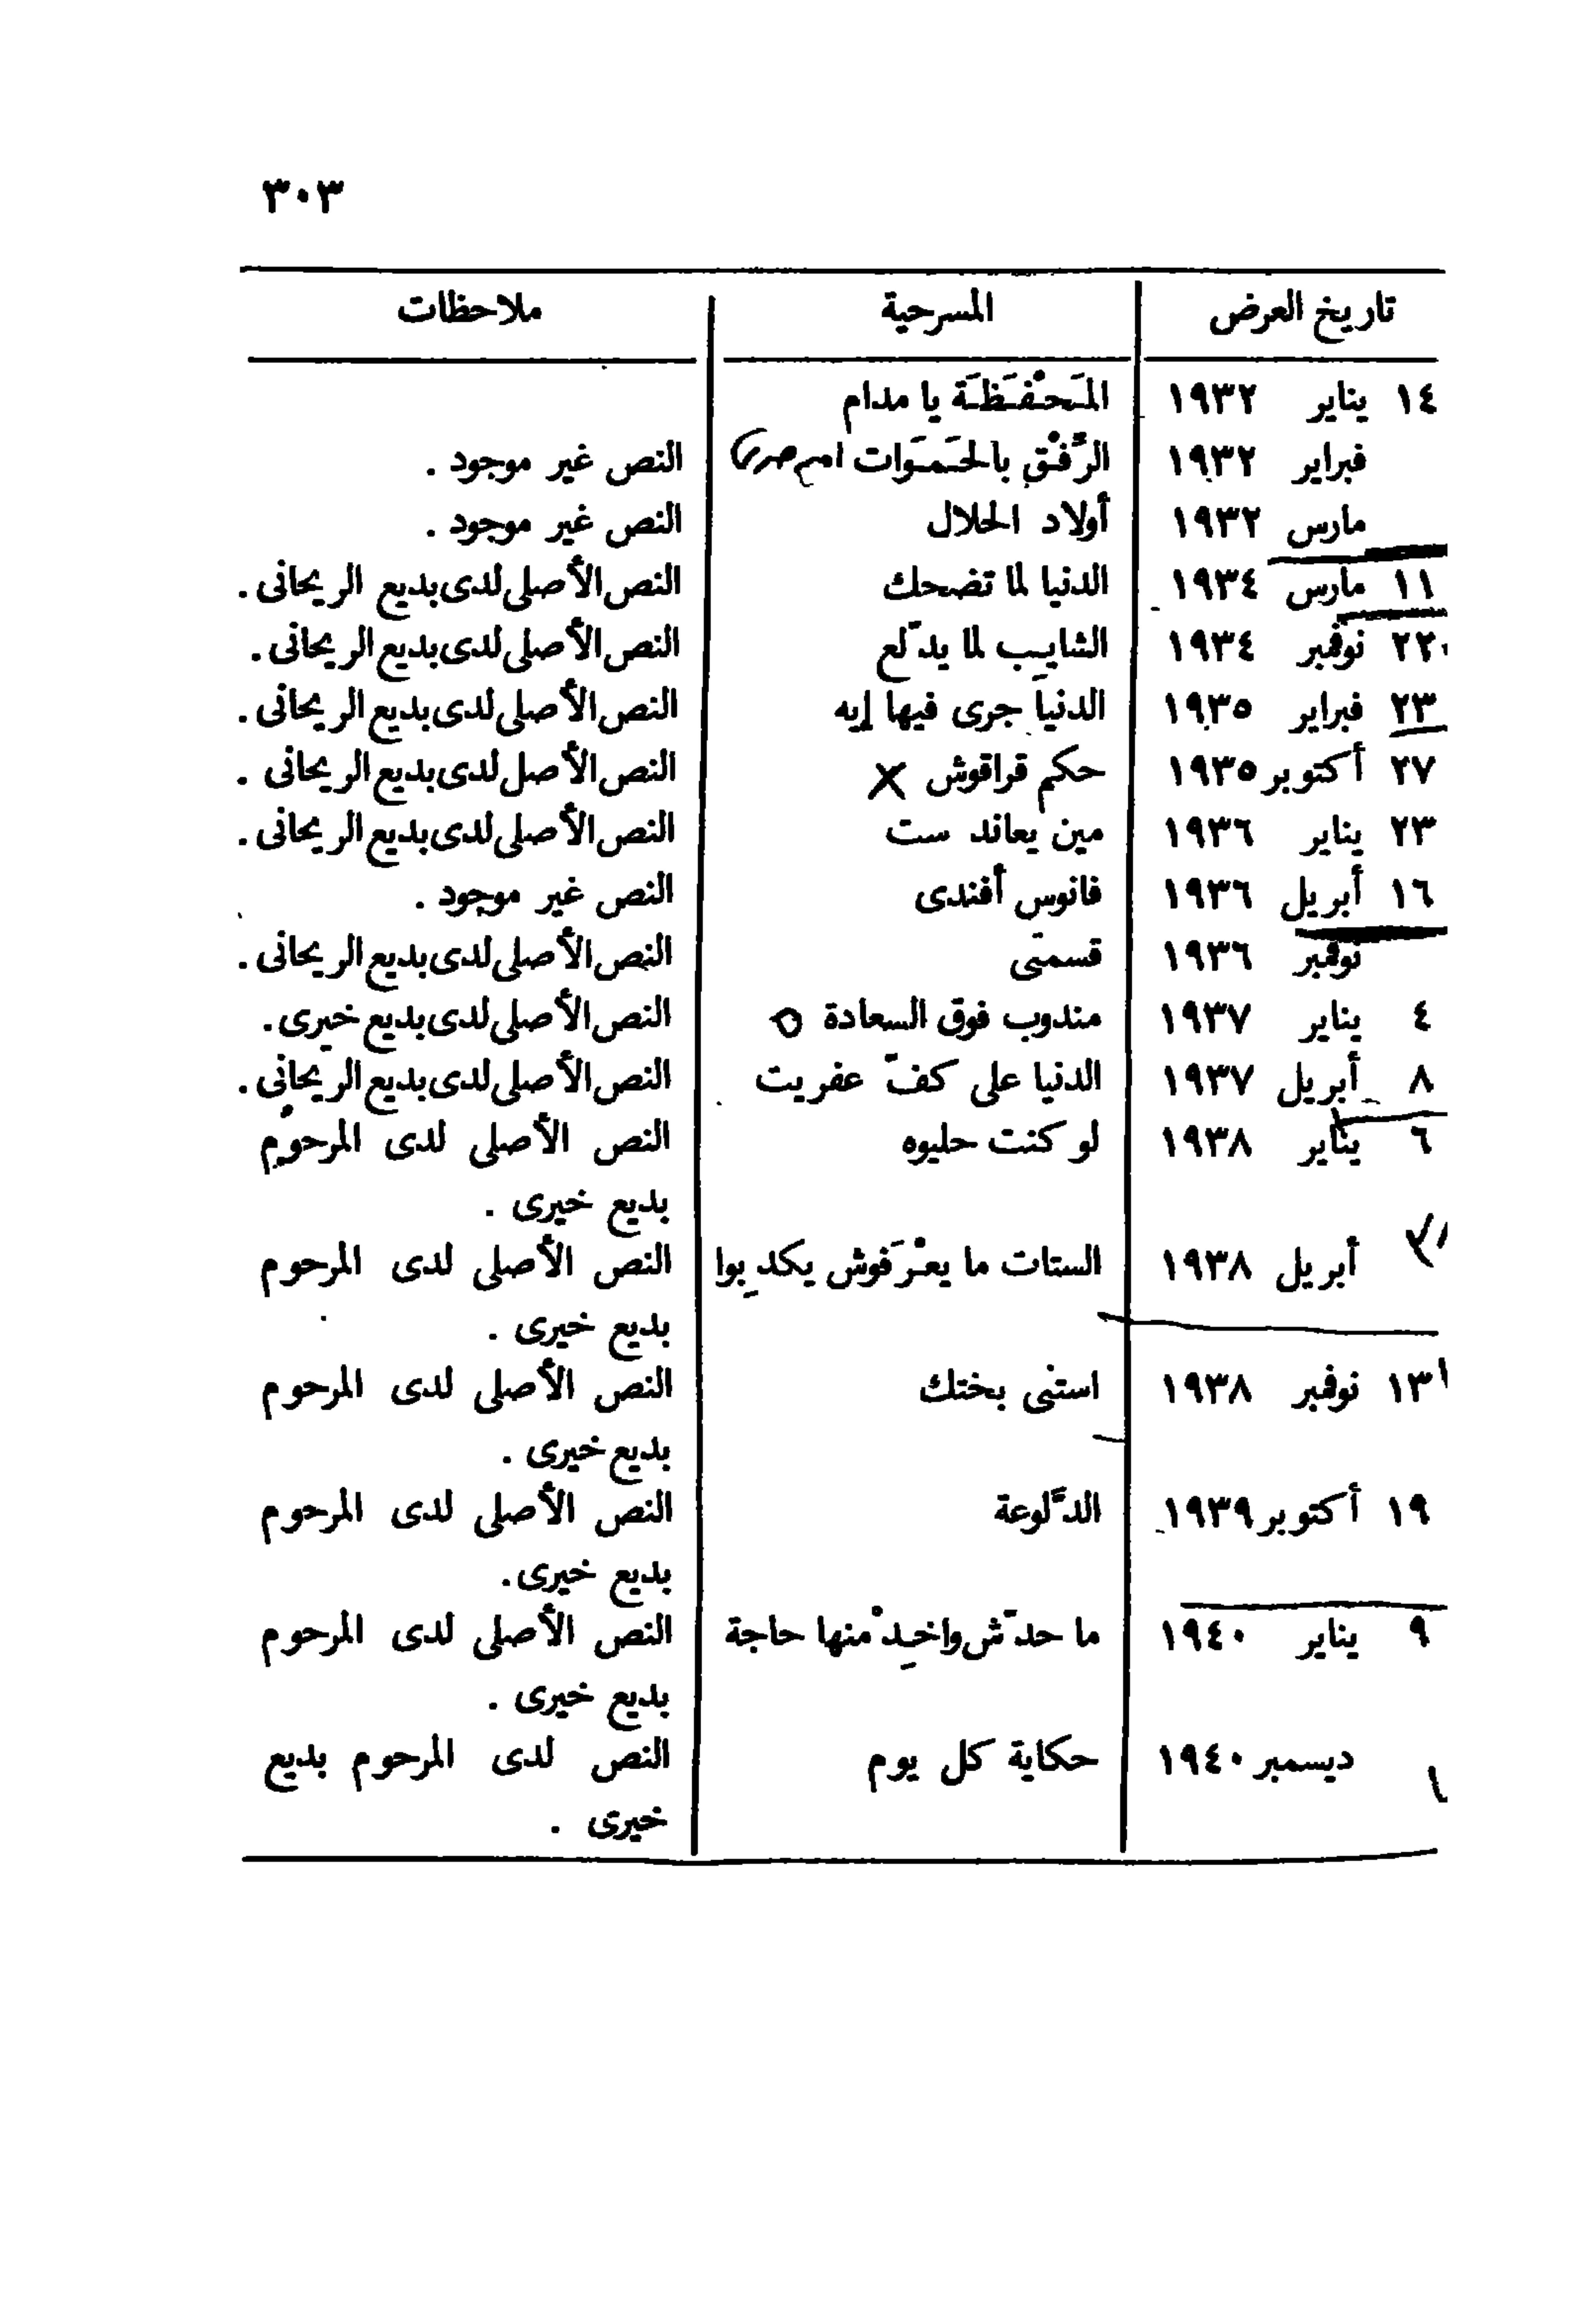 ٣٠٣
تاريخ العرض المسرحية ملاحظات
١٤ يناير ١٩٣٢ المَحْفَظَة يا مدام
فبراير ١٩٣٢ الرِّفْق بالحَمَوَات النص غير موجود .
مارس ١٩٣٢ أولاد الحلال النص غير موجود .
١١ مارس ١٩٣٤ الدنيا لما تضحك النص الأصلى لدى بديع الريحانى .
٢٢ نوفمبر ١٩٣٤ الشايِب لما يدّلع النص الأصلى لدى بديع الريحانى .
٢٣ فبراير ١٩٣٥ الدنيا جرى فيها إيه النص الأصلى لدى بديع الريحانى .
٢٧ أكتوبر ١٩٣٥ حكم قراقوش X النص الأصل لدى بديع الريحانى .
٢٣ يناير ١٩٣٦ مين يعاند ست النص الأصلى لدى بديع الريحانى .
١٦ أبريل ١٩٣٦ فانوس أفندى النص غير موجود .
نوفمبر ١٩٣٦ قسمتى النص الأصلى لدى بديع الريحانى .
٤ يناير ١٩٣٧ مندوب فوق السعادة النص الأصلى لدى بديع خيرى .
٨ أبريل ١٩٣٧ الدنيا على كفّ عفريت النص الأصلى لدى بديع الريحانى .
٦ يناير ١٩٣٨ لو كنت حليوه النص الأصلى لدى المرحوم
بديع خيرى .
أبريل ١٩٣٨ الستات ما يعْرَفوش يكدِبوا النص الأصلى لدى المرحوم
بديع خيرى .
١٣ نوفمبر ١٩٣٨ استنى بختك النص الأصلى لدى المرحوم
بديع خيرى .
١٩ أكتوبر ١٩٣٩ الدَّلوعة النص الأصلى لدى المرحوم
بديع خيرى .
٩ يناير ١٩٤٠ ما حدّش واخِدْ منها حاجة النص الأصلى لدى المرحوم
بديع خيرى .
ديسمبر ١٩٤٠ حكاية كل يوم النص لدى المرحوم بديع
خيرى .